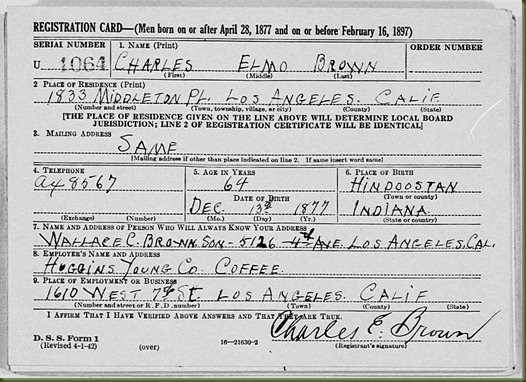 REGISTRATION CARD—(Men born on or after April 28, 1877 and on or before February 16, 1897)
SERIAL NUMBER 1. NAME (Print) ORDER NUMBER
U 1064 CHARLES ELMO BROWN
(First) (Middle) (Last)
2 PLACE OF RESIDENCE (Print)
1833 MIDDLETON PL. LOS ANGELES. CALIF
(Number and street) (Town, township, village, or city) (County) (State)
[THE PLACE OF RESIDENCE GIVEN ON THE LINE ABOVE WILL DETERMINE LOCAL BOARD
JURISDICTION; LINE 2 OF REGISTRATION CERTIFICATE WILL BE IDENTICAL]
3. MAILING ADDRESS
SAME
[Mailing address if other than place indicated on line 2. If same insert word same]
4. TELEPHONE 5. AGE IN YEARS 6. PLACE OF BIRTH
AX 8567 64 HINDOOSTAN
DATE OF BIRTH (Town or county)
DEC 13th 1877 INDIANA
(Exchange) (Number) (Mo.) (Day) (Yr.) (State or country)
7. NAME AND ADDRESS OF PERSON WHO WILL ALWAYS KNOW YOUR ADDRESS
WALLACE C. BROWN. SON - 5126 4th AVE. LOS ANGELES. CAL.
8. EMPLOYER'S NAME AND ADDRESS
HUGGINS YOUNG CO. COFFEE.
9. PLACE OF EMPLOYMENT OR BUSINESS
1610 WEST 7th ST. LOS ANGELES. CALIF
(Number and street or R. F. D. number) (Town) (County) (State)
I AFFIRM THAT I HAVE VERIFIED ABOVE ANSWERS AND THAT THEY ARE TRUE.
Charles E. Brown
D. S. S. Form 1
(Revised 4-1-42) (over) 16—21630-2 (Registrant's signature)